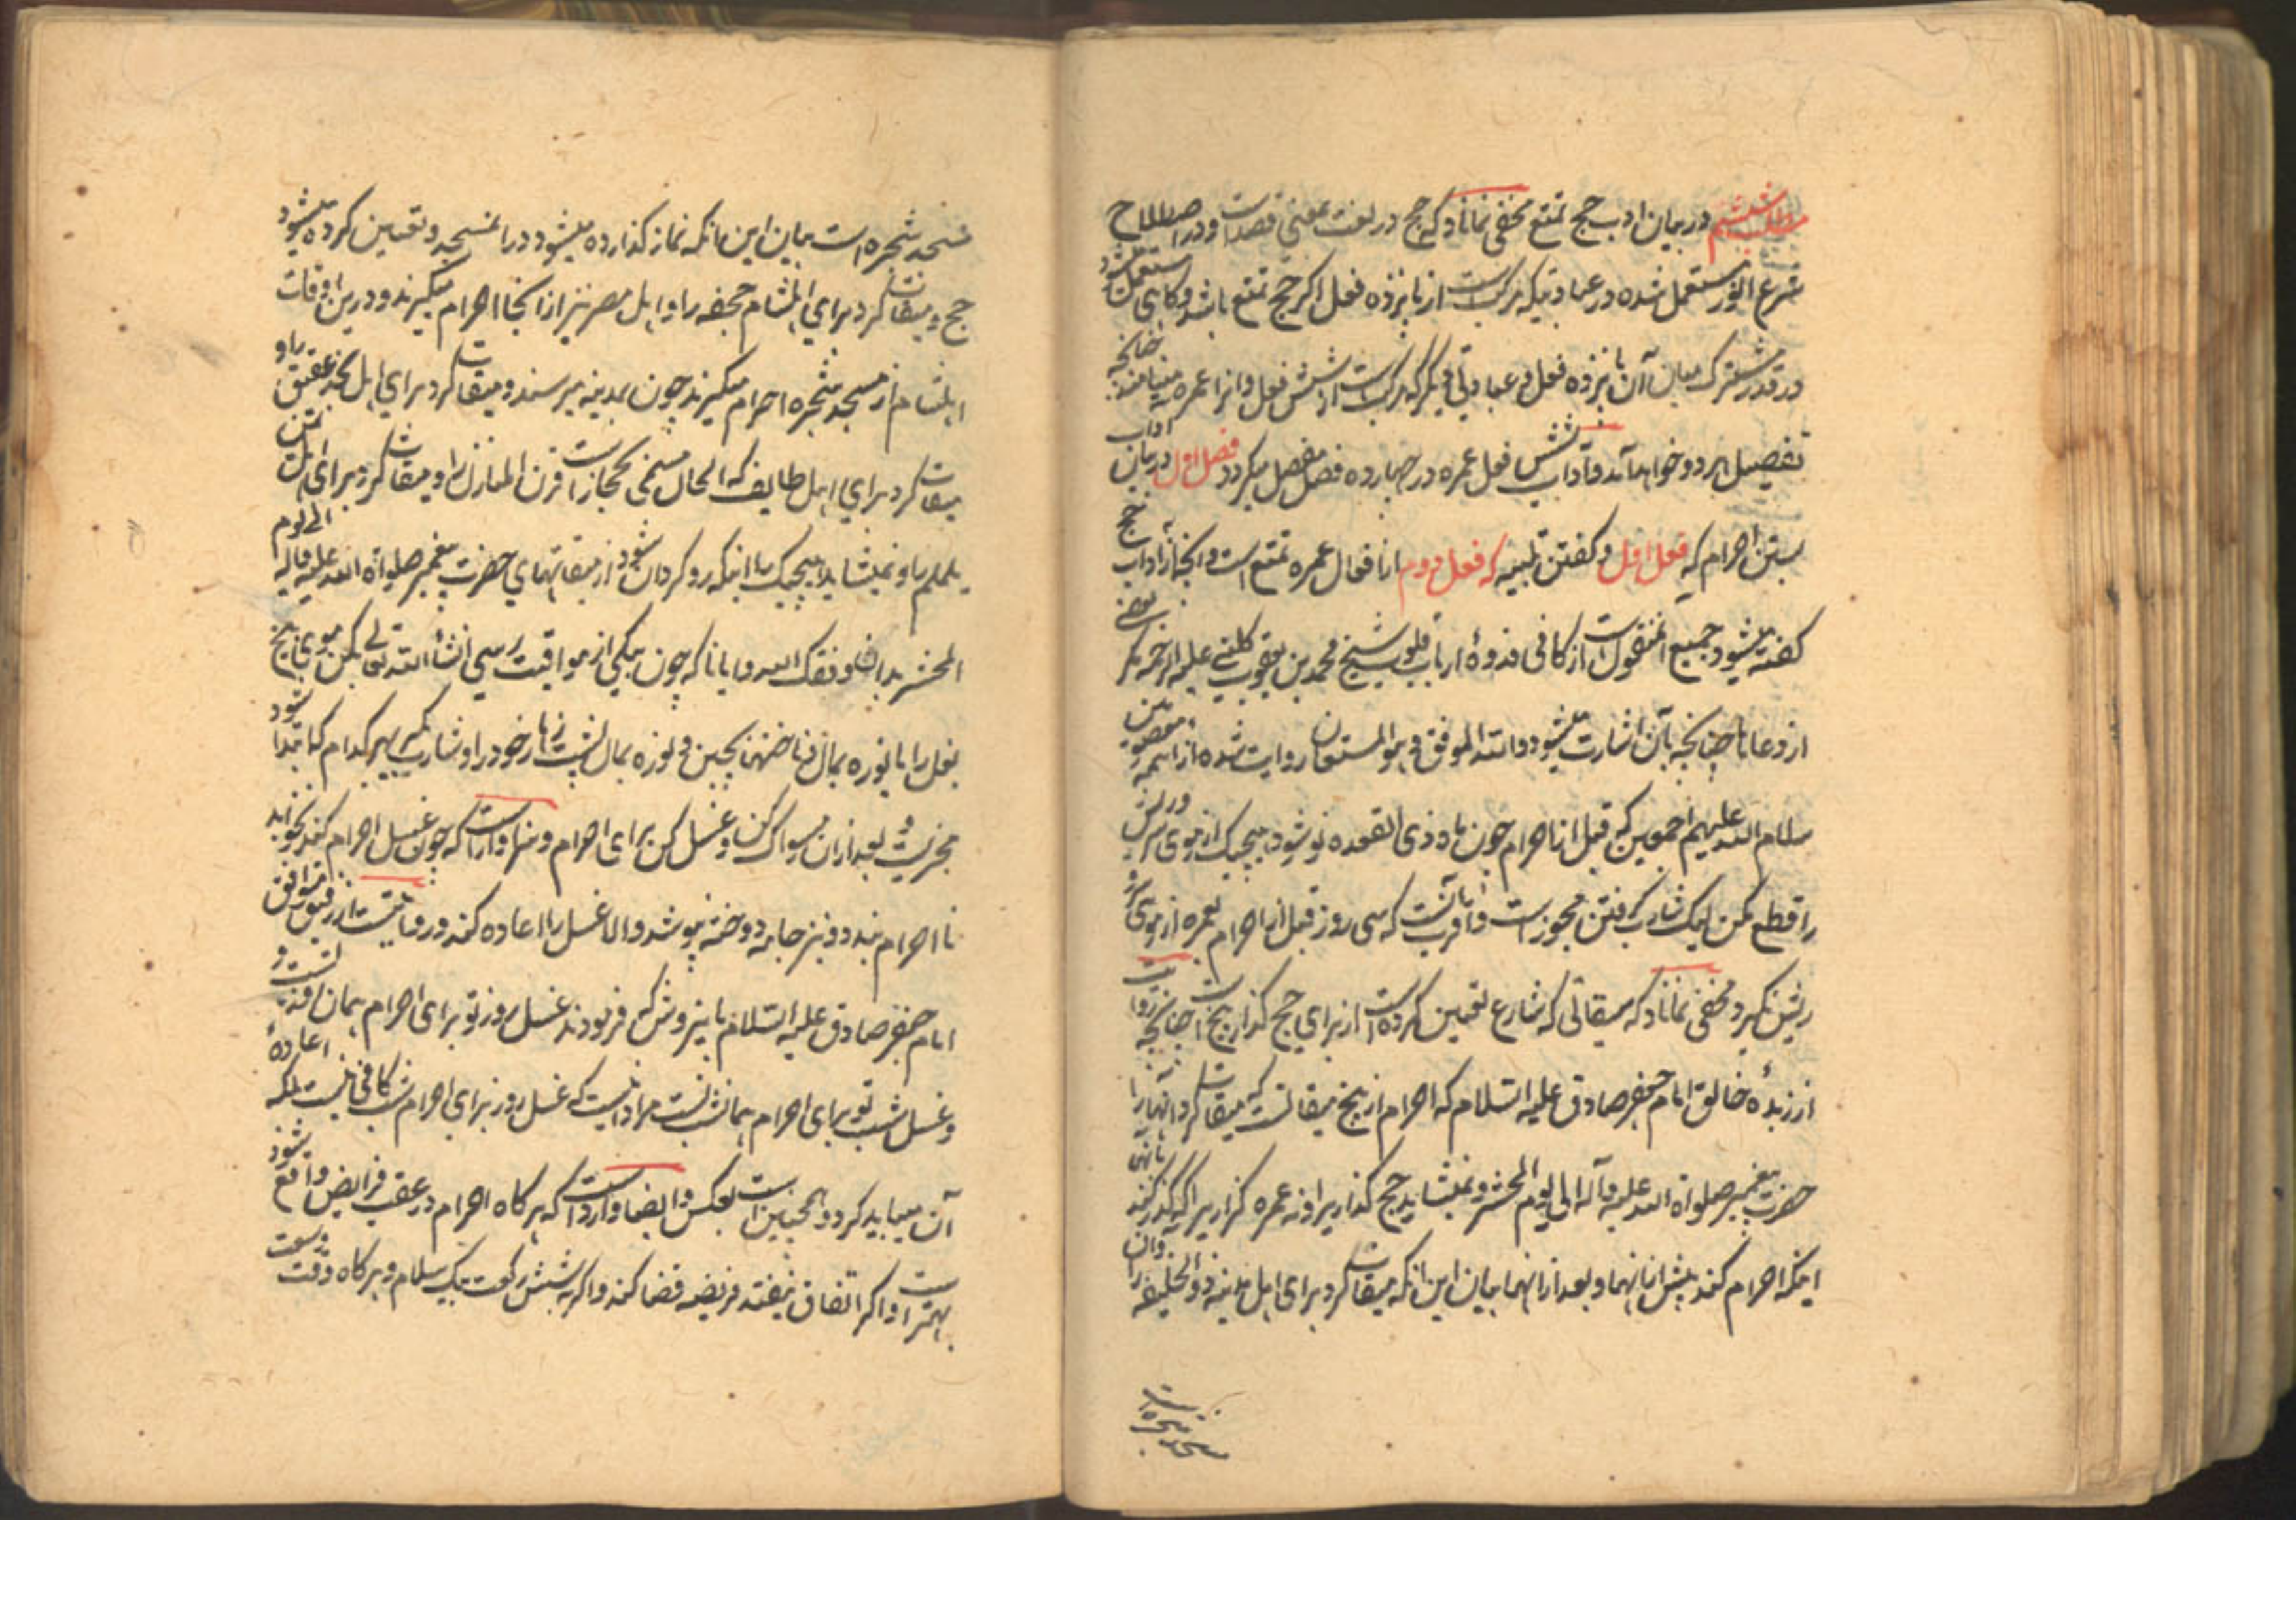 مطلب ششم در بیان ادب حج تمتع مخفی نماناد که حج در لغت بمعنی قصد است و در اصطلاح
شرع انور مستعمل شده در عبادتیکه مرکبست از پانزده فعل اگر حج تمتع باشد و کاهی مستعمل میشود
در قدر مشترک میان آن پانزده فعل و عبادتی دیگر که مرکبست از شش فعل و انرا عمره مینامند چنانچه
تفصیل هر دو خواهد آمد و آداب شش فعل عمره در چهارده فصل مفصل میکردد فصل اول در بیان آداب
بستن احرام که فعل اول و کفتن تلبیه که فعل دوم از افعال عمره تمتع است و آنچه از آداب حج
کفته میشود جمیع منقول است از کافی قدوهٔ ارباب قلوب شیخ محمد بن یعقوب کلینی علیه الرحمه مکر بعضی
از دعاها چنانچه بآن اشارت میشود والله الموفق و هو المستعان روایت شده از ائمه معصومین
سلام الله علیهم اجمعین که قبل از احرام چون ماه ذی القعده نو شود هیچیک از موی سر و ریش
را قطع مکن لیک شارب کرفتن مجوز است و اقرب آنست که سی روز قبل از احرام بعمره از موی سر و
ریش نکیرد و مخفی نماناد که میقاتی که شارع تعیین کرده است از برای حج کذار پنج است چنانچه روایت
از زبدهٔ خالق امام جعفر صادق علیه السلام که احرام از پنج میقاتست که میقات کرد آنها را
حضرت پیغمبر صلواة الله علیه و آله الی یوم المحشر و نمیشاید حج کذاریرا و نه عمره کزاریرا که کذر کند بانها
اینکه احرام کند پیش از آنها و بعد از آنها بیان این آنکه میقات کرد برای اهل مدینه ذوالحلیفه را و آن
مسجد شجره است
مسجد شجره است بیان این آنکه نماز کذارده میشود در آن مسجد و تعیین کرده میشود
حج و میقات کرد برای اهل شام جحفه را و اهل مصر نیز از آنجا احرام میکیرند و درین اوقات
اهل شام از مسجد شجره احرام میکیرند چون بمدینه میرسند و میقات کرد برای اهل نجد عقیق را و
میقات کرد برای اهل طایف که الحال مسمی بحجاز است قرن المنازل را و میقات کرد برای اهل یمن
یلملم را و نمیشاید هیچیک را اینکه رو کردان شود از میقاتهای حضرت پیغمبر صلواة الله علیه و آله الی یوم
المحشر بدان وفقک الله و ایانا که چون بیکی از مواقیت رسی انشاء الله تعالی بکن موی بیخ
بغل را یا نوره بمال و ناخنهن بچین و نوره بمال بپشت زهار خود را و شارب بکیر بهر کدام که ابتدا شود
مجزیست و بعد از آن مسواک کن و غسل کن برای احرام و سزاوار است که چون غسل احرام کند نخوابد
تا احرام بندد و نیز جامه دوخته نپوشد و الا غسل را اعاده کند و روایتست از رفیق موافق
امام جعفر صادق علیه السلام باین روش که فرمودند غسل روز تو برای احرام همان روز تست و
غسل شب تو برای احرام همان شب تست مراد اینست که غسل روز برای احرام شب کافی نیست بلکه اعادهٔ
آن میباید کرد و همچنین است بعکس و ایضا وارد است که هر کاه احرام در عقب فرایض واقع شود
بهتر است و اکر اتفاق نیفتد فریضه قضا کند و اکر نه شش رکعت بیک سلام و هر کاه وقت وسعت